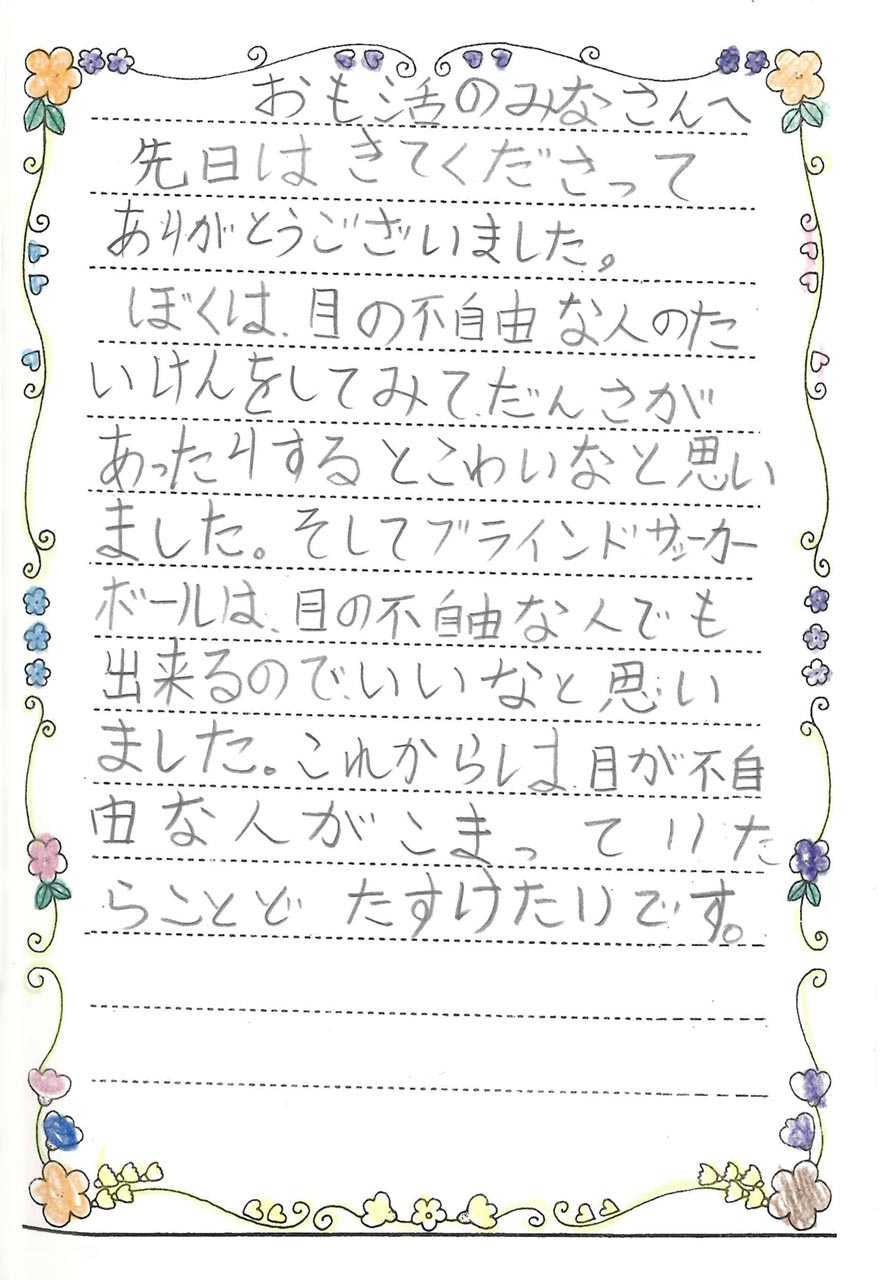 おも活のみなさんへ
先日はきてくださって
ありがとうございました。
ぼくは、目の不自由な人のた
いけんをしてみて、だんさが
あったりするとこわいなと思い
ました。そしてブラインドサッカー
ボールは、目の不自由な人でも
出来るので、いいなと思い
ました。これからは、目が不自
由な人がこまっていた
らことどたすけたいです。